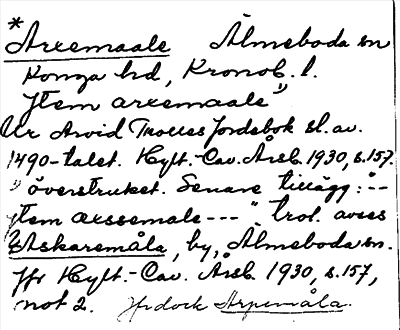 *
Arxemaale Älmeboda sn
Konga hd, Kronob. l.
Jtem arxemaale"
Ur Arvid Trolles Jordebok sl. av.
1490-talet. Hylt.-Cav. Årsb. 1930, s. 157.
") överstruket. Senare tillägg: "--
jtem axssemale ---" trol. avses
Askaremåla, by, Älmeboda sn.
Jfr Hylt.-Cav. Årsb. 1930, s. 157,
not 2. Jfr dock Arpemåla.